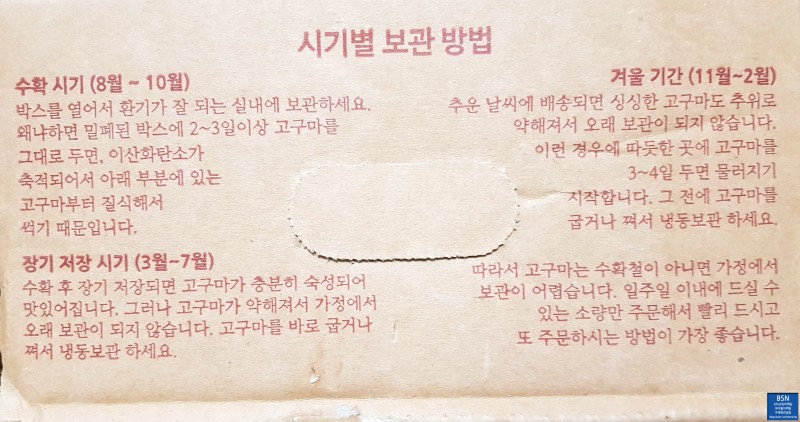 시기별 보관 방법
수확 시기 (8월 ~ 10월)
박스를 열어서 환기가 잘 되는 실내에 보관하세요.
왜냐하면 밀폐된 박스에 2~3일이상 고구마를
그대로 두면, 이산화탄소가
축적되어서 아래 부분에 있는
고구마부터 질식해서
썩기 때문입니다.
장기 저장 시기 (3월~7월)
수확 후 장기 저장되면 고구마가 충분히 숙성되어
맛있어집니다. 그러나 고구마가 약해져서 가정에서
오래 보관이 되지 않습니다. 고구마를 바로 굽거나
쪄서 냉동보관 하세요.
겨울 기간 (11월~2월)
추운 날씨에 배송되면 싱싱한 고구마도 추위로
약해져서 오래 보관이 되지 않습니다.
이런 경우에 따듯한 곳에 고구마를
3~4일 두면 물러지기
시작합니다. 그 전에 고구마를
굽거나 쪄서 냉동보관 하세요.
따라서 고구마는 수확철이 아니면 가정에서
보관이 어렵습니다. 일주일 이내에 드실 수
있는 소량만 주문해서 빨리 드시고
또 주문하시는 방법이 가장 좋습니다.
BSN